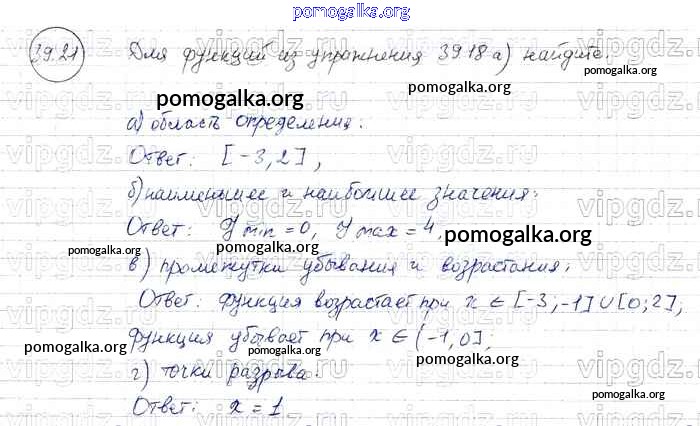 pomogalka.org
39.21 Для функций из упражнения 39.18 а) найдите:
pomogalka.org
pomogalka.org
а) область определения:
Ответ: [-3,2],
б) наименьшее и наибольшее значения:
Ответ: y min = 0, y max = 4.
pomogalka.org
pomogalka.org
в) промежутки убывания и возрастания;
Ответ: функция возрастает при x ∈ [-3;-1]∪[0;2],
функция убывает при x ∈ (-1,0];
pomogalka.org
pomogalka.org
г) точки разрыва.
pomogalka.org
Ответ: x = 1
pomogalka.org
vipgdz.ru